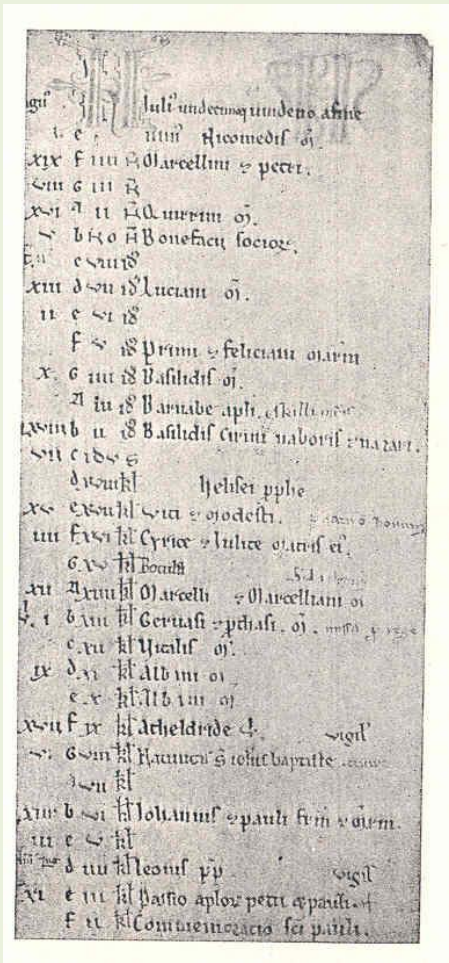 Iulii undecimo quindeno a fine
i e iiii Nicomedis m̄.
xix f iiii N̄ Marcellini et petri.
viii G iii N̄
xvi A ii N̄ Quirini m̄.
v b N̄o N̄ Bonefacii socior
c viii id
xiii d vii id Luciani m̄.
ii e vi id
f v id Primi et feliciani
x. G iiii id Basilidis m̄.
A iii id Barnabe apli.
b ii id Basilidis Cirini naboris et nazari.
vii c idus
d xviii kl helisei pphe
xv e xvii kl viti et modesti.
iiii f xvi kl Cyrice et Iulite matris ei.
G xv kl Botulfi
xii A xiiii kl Marcelli et Marcelliani m̄
i b xiii kl Geruasi et pthasi. m̄.
c xii kl Vitalis m̄.
ix d xi kl Albini m̄
e x kl Albini m̄
xvii f ix kl Atheldride vigil
vi G viii kl Natiuitas S iohis baptiste
A vii kl
xiiii b vi kl Iohannis et pauli
iii c v kl
d iiii kl leonis pp. vigil
xi e iii kl Passio aplor petri et pauli.
f ii kl Commemoracio sci pauli.